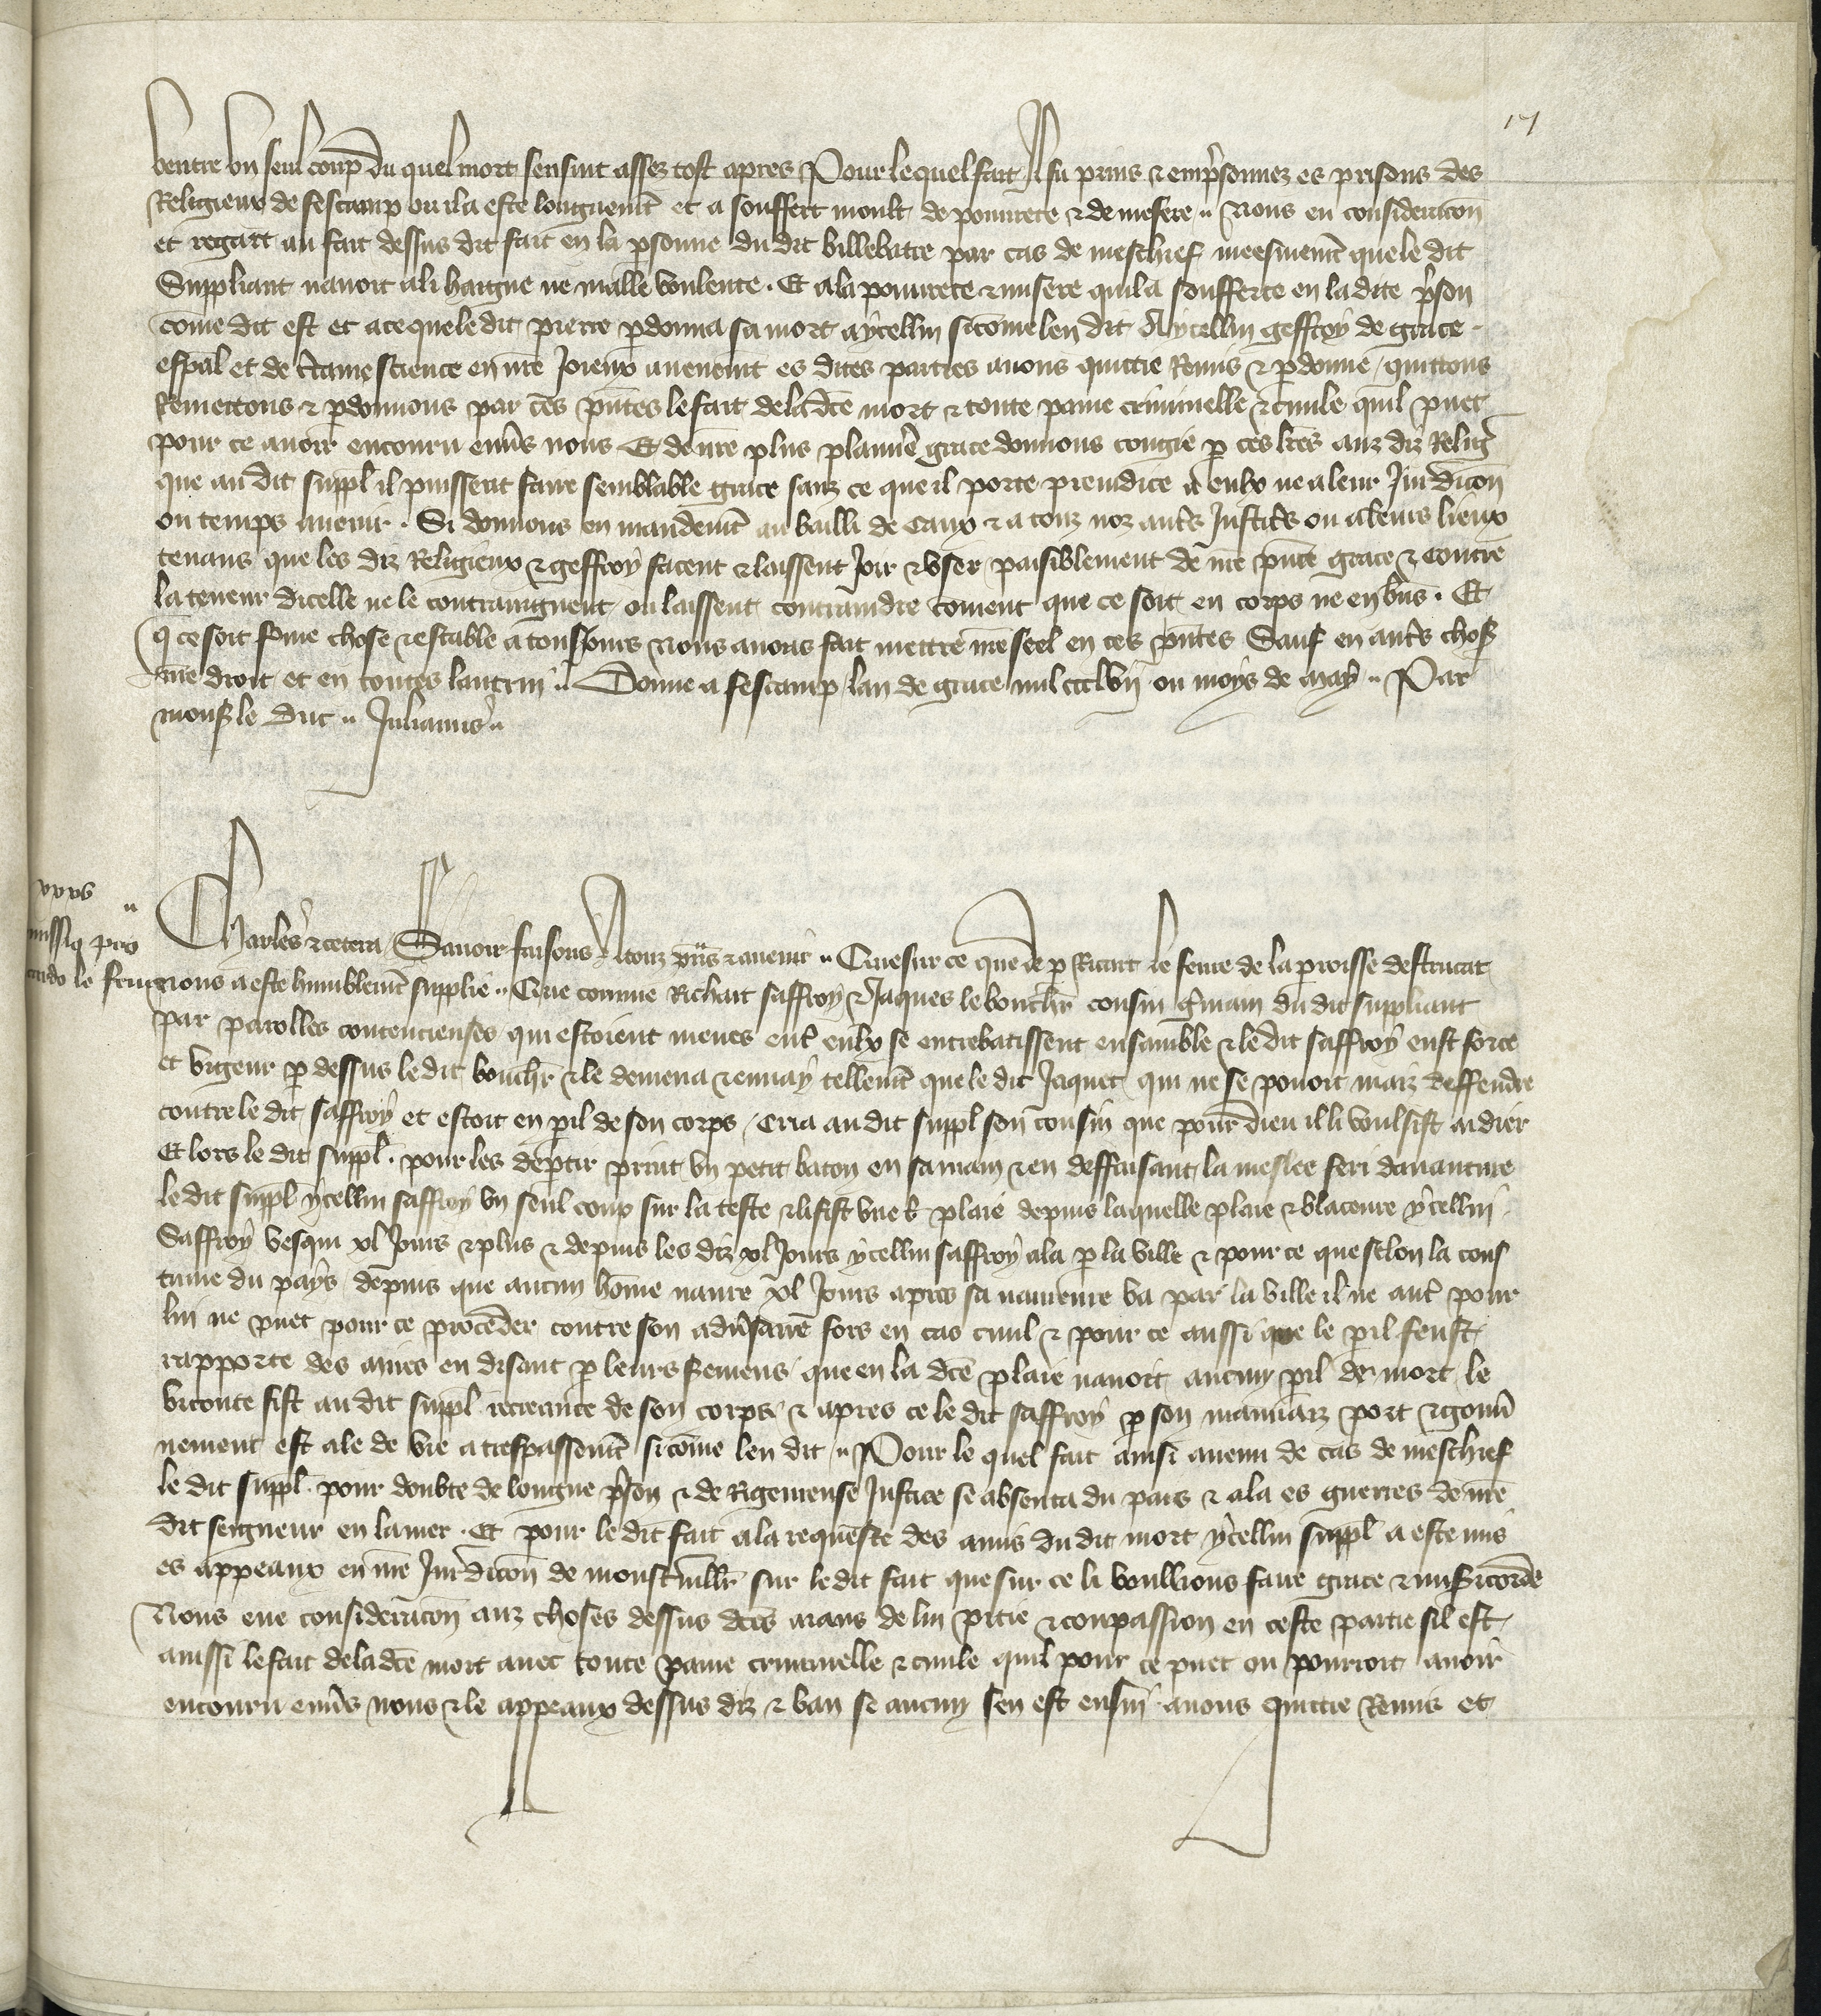 17
ventre un seul coup du quel mort sensuit assez tost apres Pour lequel fait Il fu prins & emprsonnez es prisons des
Religieux de fescamp ou il a este longuemt et a souffert moult de pourete & de mesere Nous eu consideracon
et regart au fait dessus dit fait en la psonne du dit billebatre par cas de meschief meesmemt que le dit
Suppliant navoit a li haigne ne malle voulente . Et a la pourete & misere quil a sofferte en la dite prson
come dit est et a ce que le dit pierre pdonna sa mort a ycellui sicome len dit A ycellui geffroy de grace
espal et de ctaine science en nre Joieux avenemt es dites parties avons quittie Remis & pdonne / quittons
Remettons & pdonnons par ces pntes le fait de la dce mort & toute paine criminelle & civile quil puet
pour ce avoir encouru envs nous Et de nre plus planiere grace donnons congie p ces lres auz diz Relig
que au dit suppl il puissent faire semblable grace sanz ce que il porte preiudice a eulx ne a leur Jurdicon
ou temps avenir . Si donnons en mandemt au bailli de Caux & a touz noz autrs Justicrs ou a leurs lieux
tenans que les diz Religieux & geffroy facent & laissent Joir & user paisiblement de nre pnte grace & contre
la teneur dicelle ne le contraingnent ou laissent contraindre coment que ce soit en corps ne en bns . Et
q ce soit fme chose & estable a tousiours Nous avons fait mettre nre seel en ces pntes Sauf en autrs choss
nre droit et en toutes lautrui Donne a fescamp lan de grace mil ccclvii ou moys de may Par
mons le duc Julianus
Charles & cetera / Savoir faisons A touz pns & avenir Que sur ce que de p Ricart le fevre de la proisse destrucat
nous a este humblemt supplie Que comme Richart saffroy & Jaques le bouchr cousin gmain du dit suppliant
par parolles contencieuses qui estoient meues entr eulx se entrebatissent ensamble & le dit saffroy eust force
et vigeur p dessus le dit bouchr & le demena & envay tellemt que le dit Jaquet qui ne se povoit maiz deffendre
contre le dit saffroy et estoit en pil de son corps / Cria au dit suppl son cousin que pour dieu il li voulsist aidier
Et lors le dit suppl . pour les deptir print un petit baton en sa main & en deffaisant la meslee feri davanture
le dit suppl ycellui saffroy un seul coup sur la teste & li fist une plaie depuis laquelle plaie & blaceure ycellui
Saffroy vesqui xl Jours & plus & depuis les diz xl Jours ycellui saffroy ala p la ville & pour ce que selon la cous
tume du pays depuis que aucun home navre xl Jours apres sa navreure va par la ville il ne autr pour
lui ne puet pour ce proceder contre son advsaire fors en cas civil & pour ce aussi que le pil feust
rapporte des mires en disant p leurs Semens que en la dce plaie navoit aucun pil de mort / le
viconte fist au dit suppl recreance de son corps & apres ce le dit saffroy p son mauvaiz port & gouv
nement est ale de vie a trespassemt sicome len dit Pour le quel fait ainsi avenu de cas de meschief
le dit suppl . pour doubte de longue prson & de Rigeureuse Justice se absenta du pais & ala es guerres de nre
dit seigneur en la mer . Et pour le dit fait a la requeste des amis du dit mort ycellui suppl a este mis
es appeaux en nre Jurdicon de monstrvillr sur le dit fait que sur ce li voullions faire grace & misicorde
Nous eue consideracon auz choses dessus dces aians de lui pitie & conpassion en ceste partie sil est
ainssi le fait de la dce mort avec toute paine criminelle & civile quil pour ce puet ou pourroit avoir
encouru envs nous & le appeaux dessus diz & ban se aucun sen est ensui avons quittie Remis et